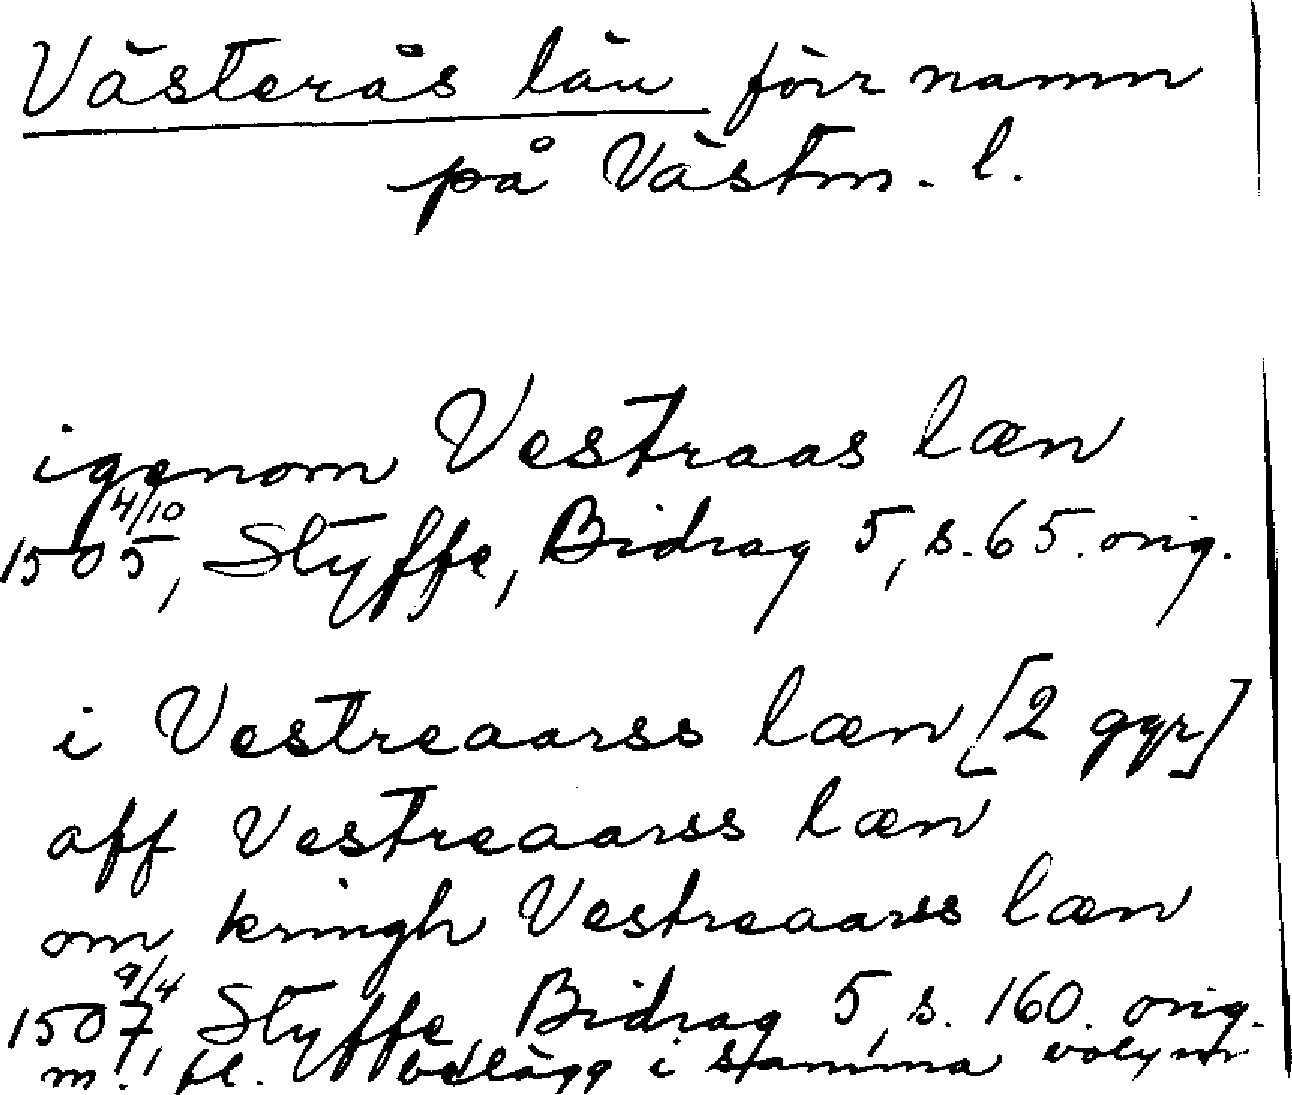 Västerås län förr namn
på Västm. l.
igenom Vestraas læn
1505 4/10, Styffe, Bidrag 5, s. 65. orig.
i Vestreaarss læn [2 ggr]
aff Vestreaarss læn
om kringh Vestreaarss læn
1507 9/4, Styffe, Bidrag 5, s. 160. orig.
m. fl. belägg i samma volym